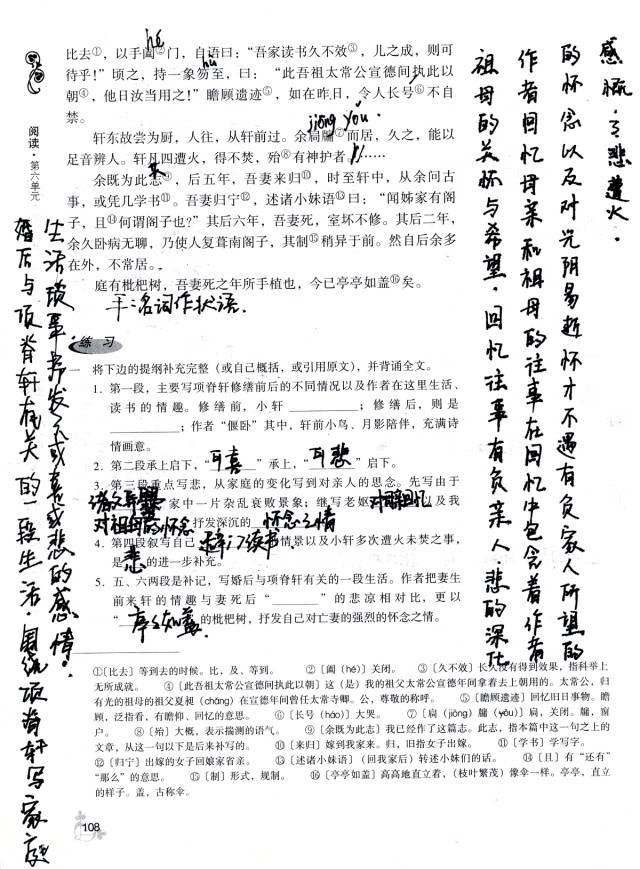 比去①，以手阖②门，自语曰：“吾家读书久不效③，儿之成，则可
待乎！”顷之，持一象笏至，曰：“此吾祖太常公宣德间执此以
朝④，他日汝当用之！”瞻顾遗迹⑤，如在昨日，令人长号⑥不自
禁。
轩东故尝为厨，人往，从轩前过。余扃牖⑦而居，久之，能以
足音辨人。轩凡四遭火，得不焚，殆⑧有神护者。……
余既为此志⑨，后五年，吾妻来归⑩，时至轩中，从余问古
事，或凭几学书⑪。吾妻归宁⑫，述诸小妹语⑬曰：“闻姊家有阁
子，且⑭何谓阁子也？”其后六年，吾妻死，室坏不修。其后二年，
余久卧病无聊，乃使人复葺南阁子，其制⑮稍异于前。然自后余多
在外，不常居。
庭有枇杷树，吾妻死之年所手植也，今已亭亭如盖⑯矣。
hé
hù
jiōng yǒu
名词作状语.
练习
一 将下边的提纲补充完整（或自己概括，或引用原文），并背诵全文。
1. 第一段，主要写项脊轩修缮前后的不同情况以及作者在这里生活、
读书的情趣。修缮前，小轩__________；修缮后，则是
__________；作者“偃卧”其中，轩前小鸟、月影陪伴，充满诗
情画意。
2. 第二段承上启下，“可喜”承上，“可悲”启下。
3. 第三段重点写悲，从家庭的变化写到对亲人的思念。先写由于
诸父异爨 家中一片杂乱衰败景象；继写老妪 回忆 以及我
对祖母的怀念，抒发深沉的 怀念之情
4. 第四段叙写自己 闭门读书 情景以及小轩多次遭火未焚之事，
是 悲 的进一步补充。
5. 五、六两段是补记，写婚后与项脊轩有关的一段生活。作者把妻生
前来轩的情趣与妻死后“__________”的悲凉相对比，更以
“亭亭如盖”的枇杷树，抒发自己对亡妻的强烈的怀念之情。
①〔比去〕等到去的时候。比，及、等到。 ②〔阖（hé）〕关闭。 ③〔久不效〕长久没有得到效果，指科举上
无所成就。 ④〔此吾祖太常公宣德间执此以朝〕这（是）我的祖父太常公宣德年间拿着去上朝用的。太常公，归
有光的祖母的祖父夏昶（chǎng）在宣德年间曾任太常寺卿。公，尊敬的称呼。 ⑤〔瞻顾遗迹〕回忆旧日事物。瞻
顾，泛指看，有瞻仰、回忆的意思。 ⑥〔长号（háo）〕大哭。 ⑦〔扃（jiōng）牖（yǒu）〕扃，关闭。牖，窗
户。 ⑧〔殆〕大概，表示揣测的语气。 ⑨〔余既为此志〕我已经作了这篇志。此志，指本篇中这一句之上的
文章，从这一句以下是后来补写的。 ⑩〔来归〕嫁到我家来。归，旧指女子出嫁。 ⑪〔学书〕学写字。
⑫〔归宁〕出嫁的女子回娘家省亲。 ⑬〔述诸小妹语〕（回我家后）转述小妹们的话。 ⑭〔且〕有“还有”
“那么”的意思。 ⑮〔制〕形式，规制。 ⑯〔亭亭如盖〕高高地直立着，（枝叶繁茂）像伞一样。亭亭，直立
的样子。盖，古称伞。
108
阅读·第六单元
感慨，悲遭火.
的怀念以及对光阴易逝怀才不遇有负家人所望的
作者回忆母亲和祖母的往事在回忆中包含着作者
祖母的关怀与希望，回忆往事有负亲人，悲的深化
生活琐事抒发了或喜或悲的感情.
婚后与项脊轩有关的一段生活.围绕项脊轩写家庭